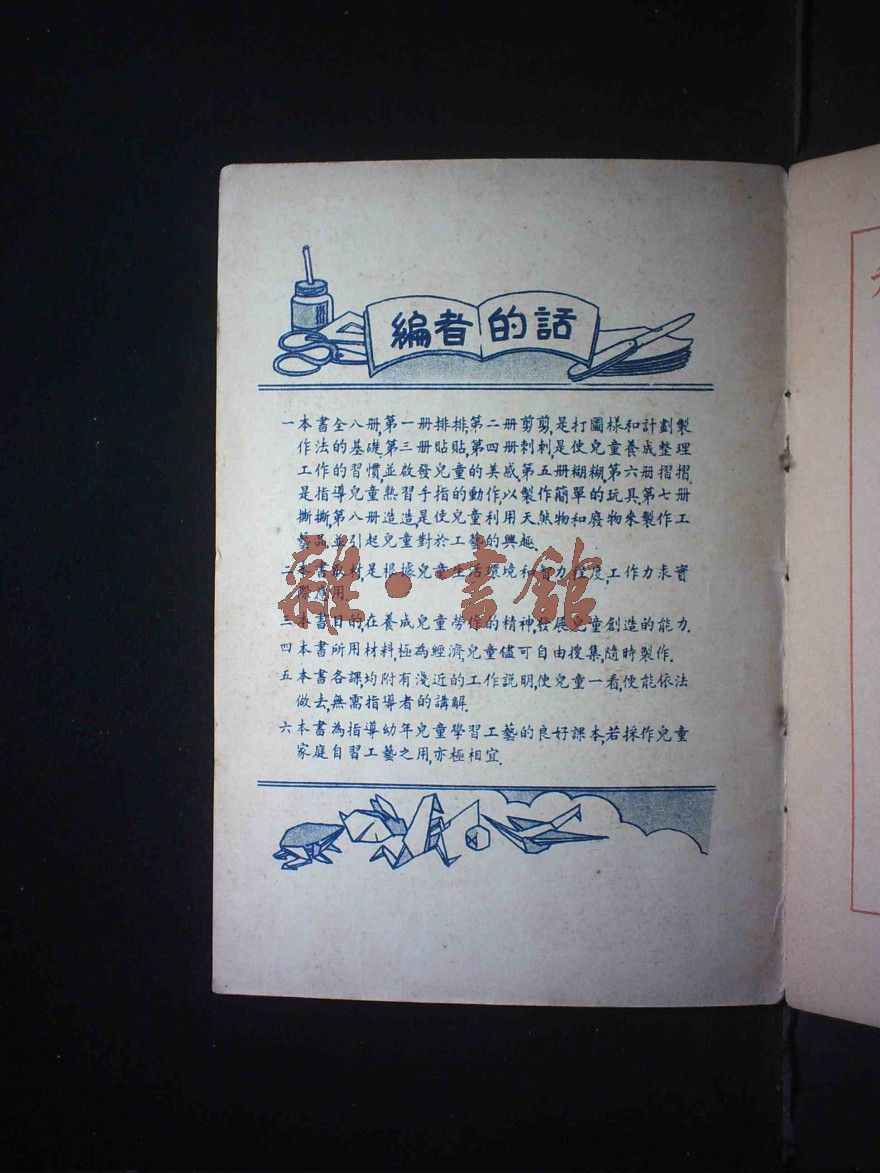 編者的話
一 本書全八册,第一册排排,第二册剪剪,是打圖樣和計劃製
作法的基礎.第三册貼貼,第四册刺刺,是使兒童養成整理
工作的習慣,並啟發兒童的美感.第五册糊糊,第六册摺摺.
是指導兒童熟習手指的動作,以製作簡單的玩具.第七册
撕撕,第八册造造,是使兒童利用天然物和廢物來製作工
藝品,並引起兒童對於工藝的興趣.
二 本書取材,是根據兒童生活環境和智力程度,工作力求實
際應用.
三 本書目的,在養成兒童勞作的精神,發展兒童創造的能力.
四 本書所用材料,極為經濟,兒童儘可自由搜集,隨時製作.
五 本書各課,均附有淺近的工作説明,使兒童一看,便能依法
做去,無需指導者的講解.
六 本書為指導幼年兒童學習工藝的良好課本,若採作兒童
家庭自習工藝之用,亦極相宜.
雜·書館